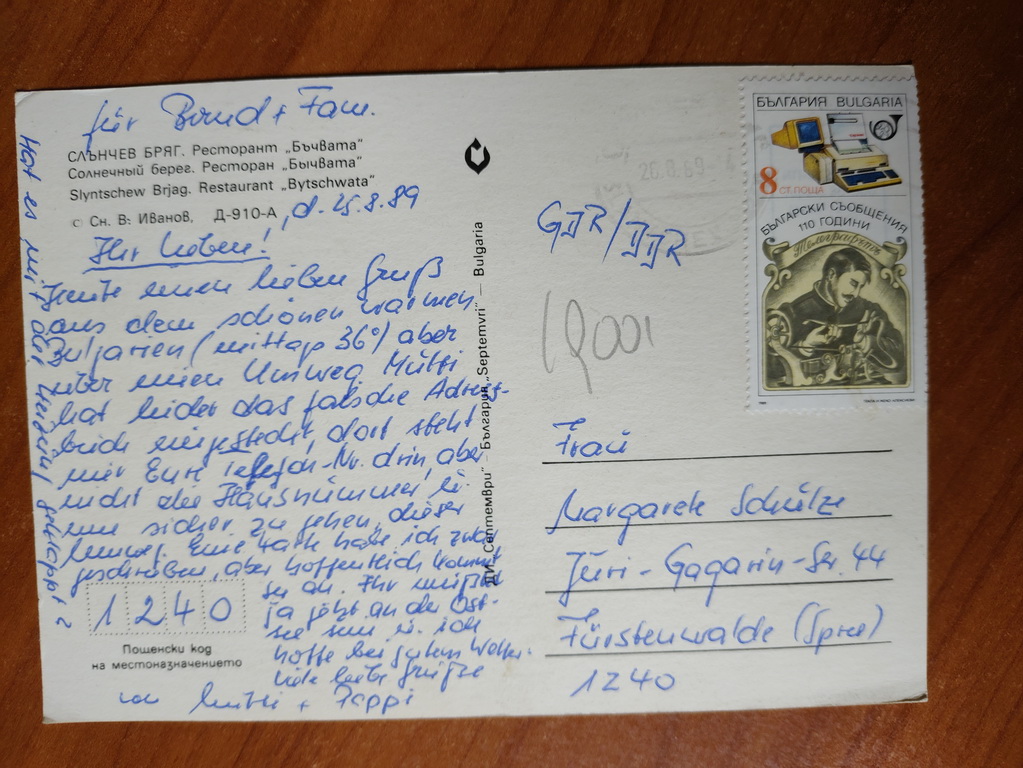 für Bernd + Fam.
СЛЪНЧЕВ БРЯГ. Ресторант „Бъчвата"
Солнечный берег. Ресторан „Бычвата"
Slyntschew Brjag. Restaurant „Bytschwata"
© Сн. В. Иванов, Д-910-А
, d. 25.8.89
Ihr Lieben!
Heute einen lieben Gruß
aus dem schönen warmen
Bulgarien (mittags 36°) aber
über einen Umweg. Mutti
hat leider das falsche Adreß-
buch eingesteckt, dort steht
nur Eure Telefon-Nr. drin, aber
nicht die Hausnummer u.
um sicher zu gehen, dieser
Umweg. Eine Karte habe ich zwar
geschrieben, aber hoffentlich kommt
sie an. Ihr müßtet
ja jetzt an der Ost-
see sein u. ich
hoffe bei gutem Wetter.
Viele liebe Grüße
von Mutti + Pappi
Hat es mit der geklappt?
1240
Пощенски код
на местоназначението
ДИ „Септември" — България „Septemvri" — Bulgaria
26.8.89
БЪЛГАРИЯ BULGARIA
8 СТ. ПОЩА
БЪЛГАРСКИ СЪОБЩЕНИЯ
110 ГОДИНИ
GDR/DDR
Frau
Margarete Schütze
Juri-Gagarin-Str. 44
Fürstenwalde (Spree)
1240